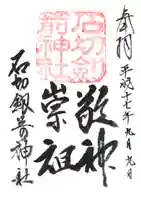 奉拝 平成十七年九月九日
敬神
崇祖
石切劔箭神社
石切劔箭神社